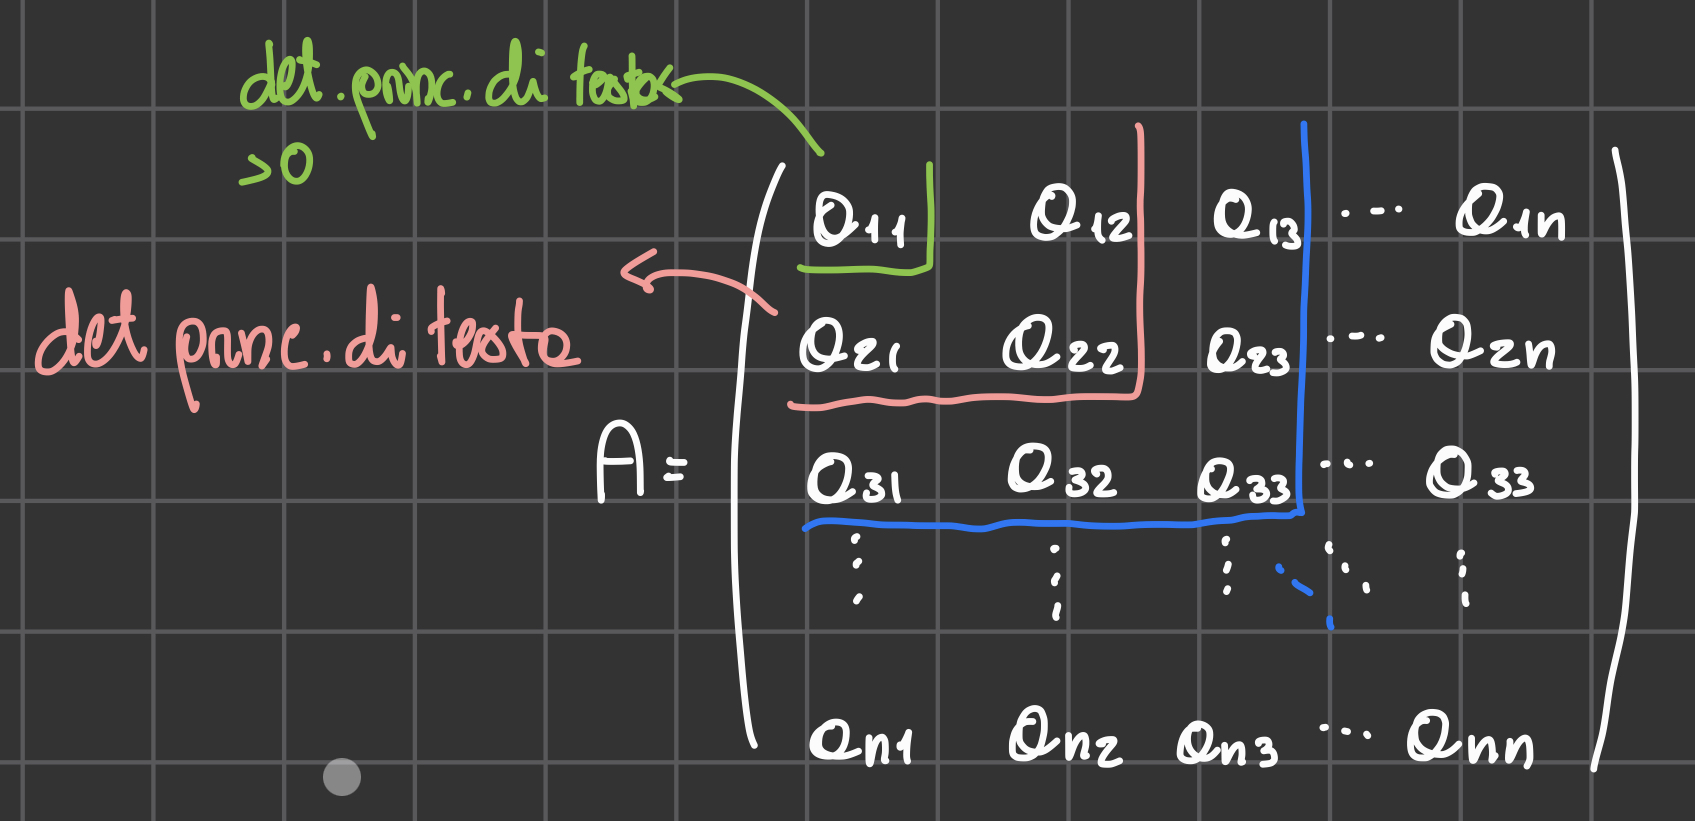 det.princ.di testa
>0
det princ.di testa
A=
a11 a12 a13 ... a1n
a21 a22 a23 ... a2n
a31 a32 a33 ... a33
an1 an2 an3 ... ann